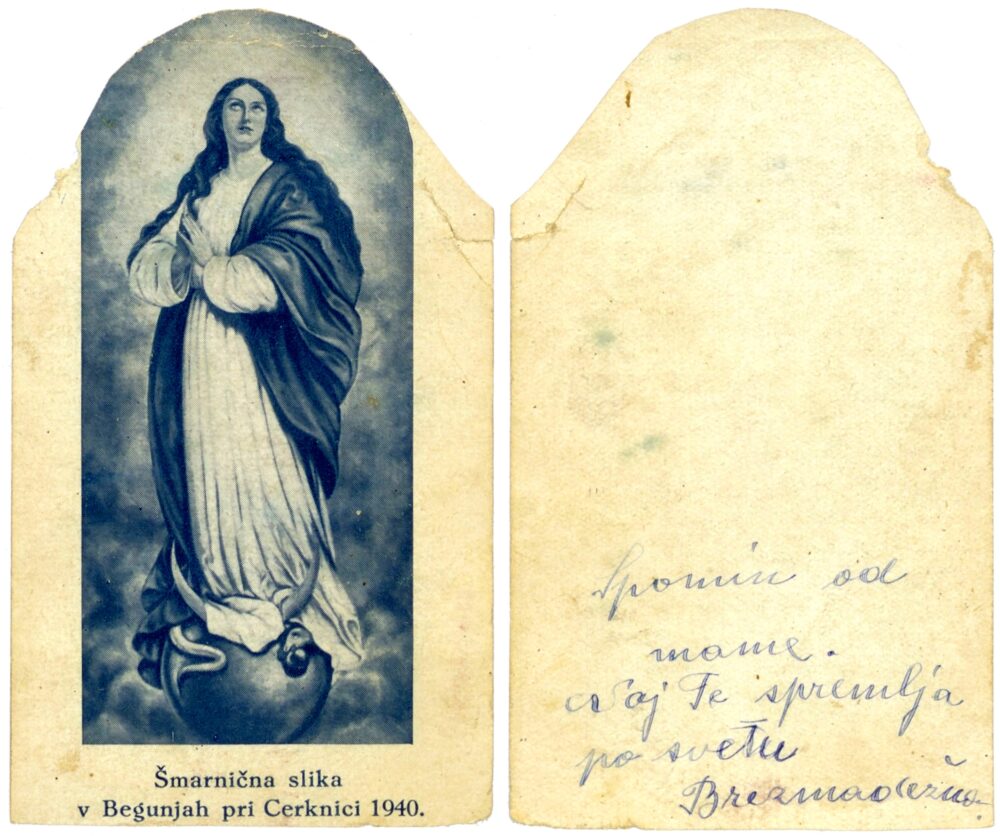 Šmarnična slika
v Begunjah pri Cerknici 1940.
Spomin od
mame.
Naj Te spremlja
po svetu
Brezmadežna.